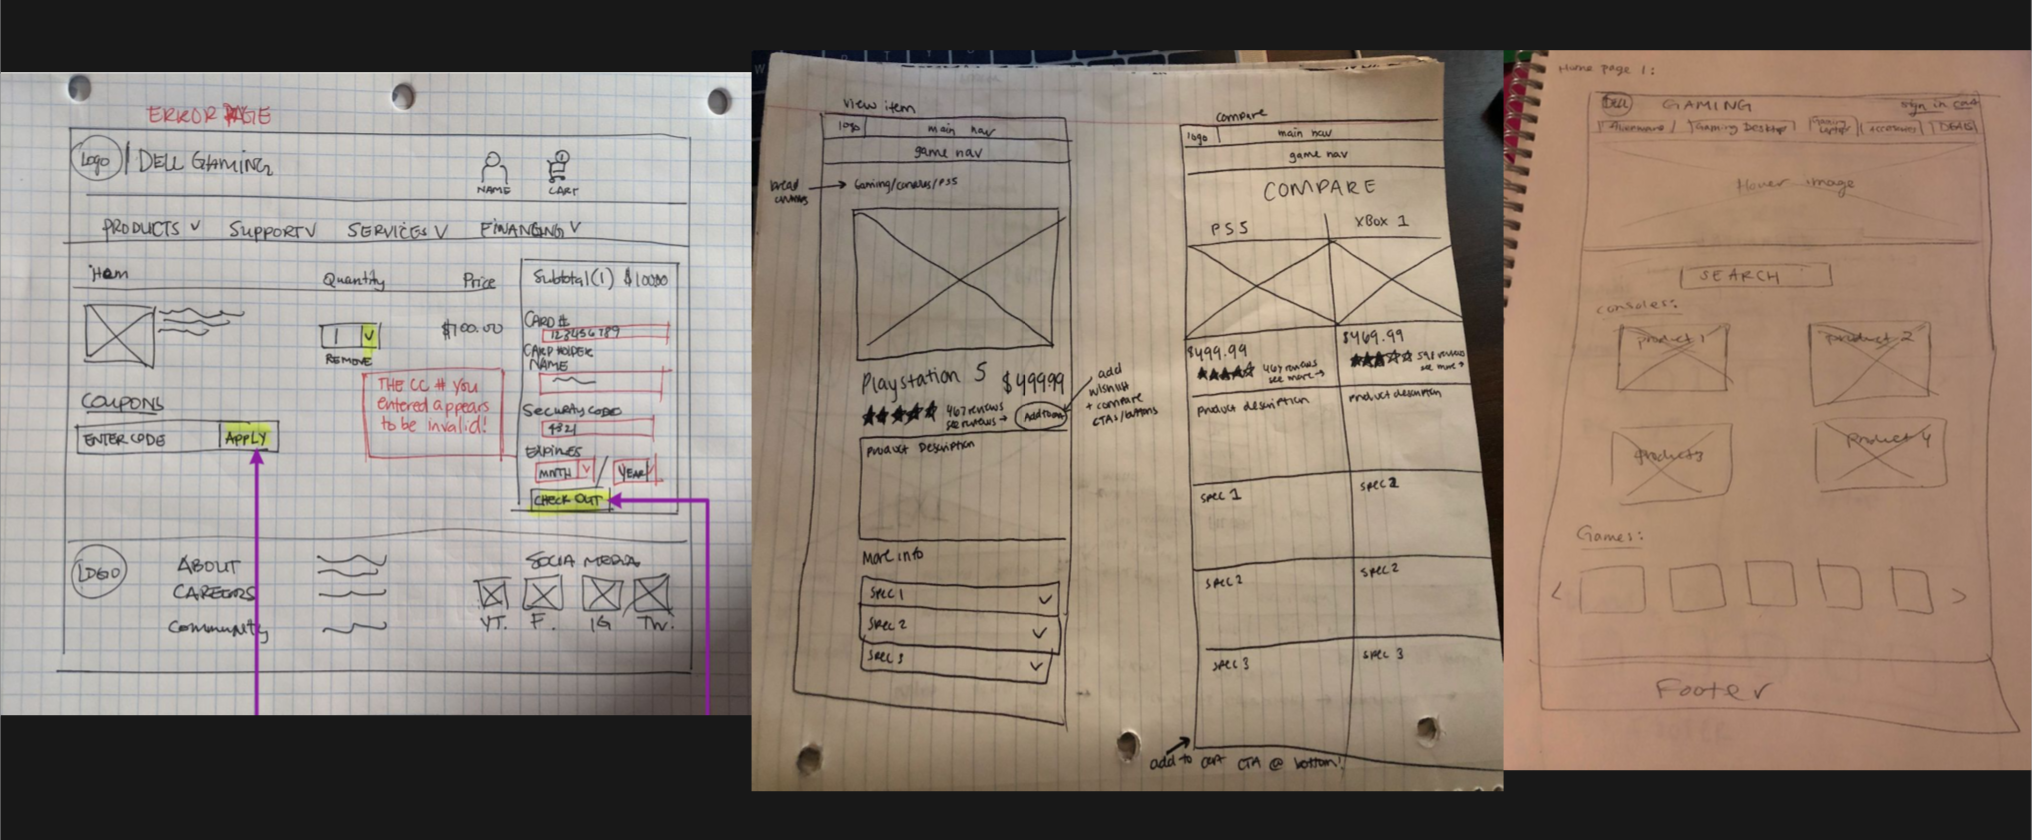 ERROR PAGE
Logo | DELL GAMING
NAME
CART
PRODUCTS SUPPORT SERVICES FINANCING
Item Quantity Price
1
REMOVE
$100.00
COUPONS
ENTER CODE APPLY
THE CC # YOU
entered appears
to be invalid!
Subtotal (1) $100.00
CARD #
123456789
CARD HOLDER
NAME
Security CODE
4321
EXPIRES
MNTH / YEAR
CHECK OUT
LOGO
ABOUT
CAREERS
Community
SOCIA MEDIA
YT. F. IG TW.
View item
logo main nav
game nav
bread
Gaming/consoles/PS5
Playstation 5 $499.99
467 reviews
see reviews →
Add to cart
add
wishlist
+ compare
CTAs/buttons
Product Description
More info
Spec 1
Spec 2
Spec 3
Compare
logo main nav
game nav
COMPARE
PS5 XBox 1
$499.99 $469.99
467 reviews
see more →
598 reviews
see more →
Product description Product description
Spec 1 Spec 2
Spec 2 Spec 2
Spec 3 Spec 3
add to cart CTA @ bottom!
Home page 1:
Dell GAMING sign in cart
Alienware / Gaming Desktop Gaming Laptop accessories DEALS
Hover image
SEARCH
consoles:
product 1 product 2
product 3 product 4
Games:
Footer